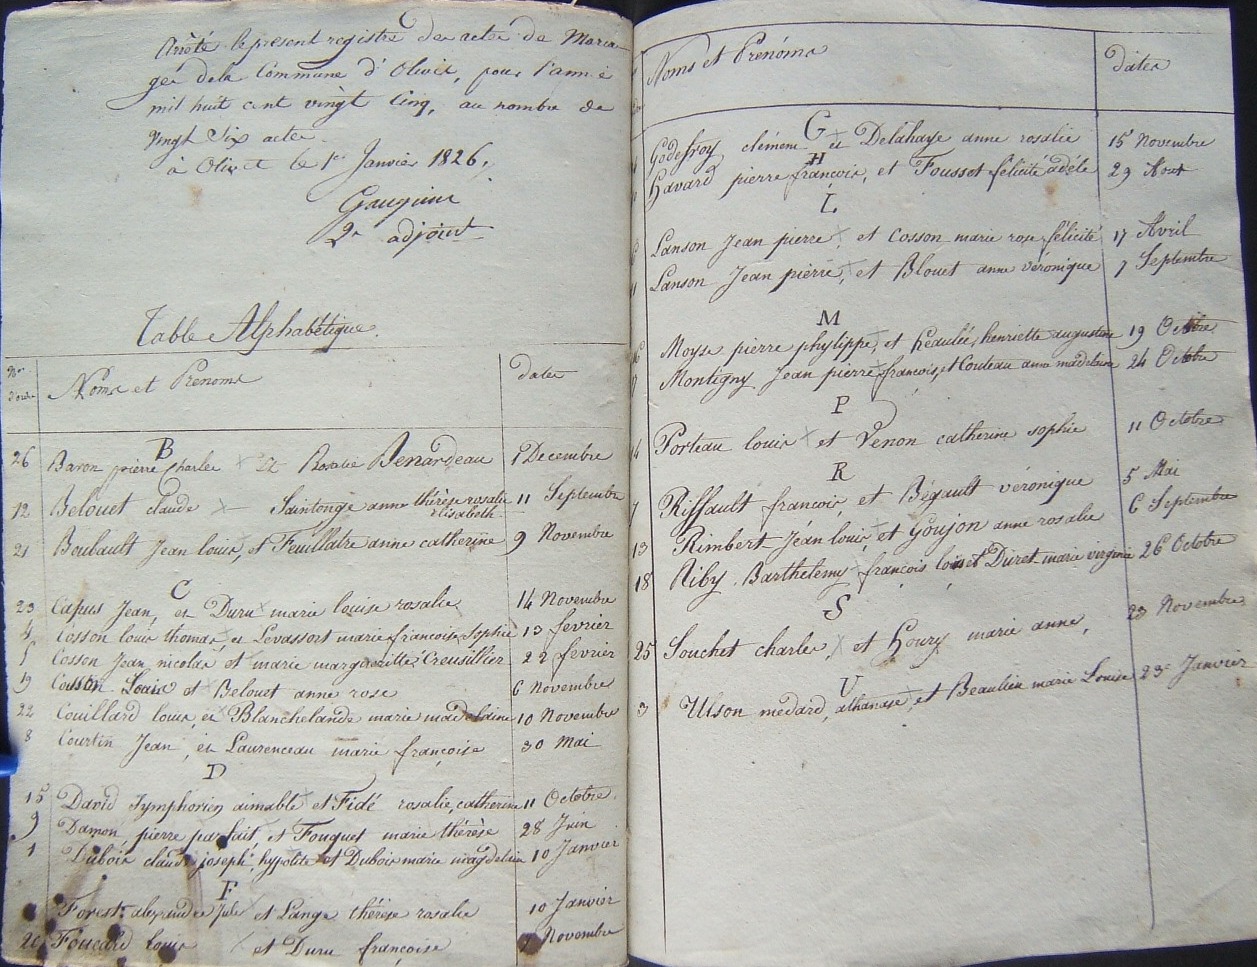 Arrêté le present registre des actes de Maria
ges de la Commune d'Olivet, pour l'année
mil huit cent vingt Cinq, au nombre de
vingt Six actes.
à Olivet le 1er Janvier 1826,
2e adjoint
Table Alphabétique.
Nos d'ordre
Noms et Prenoms
dates
B
26 Baron pierre Charles et Rosalie Benardeau 1 Decembre
12 Belouet claude Saintonge anne thérèse rosalie 11 Septembre
Elisabeth
21 Boubault Jean louis, et Feuillatre anne catherine 9 Novembre
C
23 Capus Jean, et Duru marie louise rosalie 14 Novembre
4 Cosson louis thomas, et Levassort marie françoise Sophie 13 fevrier
5 Cosson Jean nicolas et marie margueritte Creusillier 22 fevrier
19 Cosson Louis et Belouet anne rose 6 Novembre
22 Couillard louis, et Blanchelande marie madelaine 10 Novembre
8 Courtin Jean, et Laurenceau marie françoise 30 Mai
D
15 David Symphorien aimable et Fidé rosalie catherine 11 Octobre
9 Damon, pierre parfait, et Fouquet marie thérèse 28 Juin
1 Dubois claude joseph hyppolite et Dubois marie magdelein 10 Janvier
F
Forest alexandre Jules et Lange thérèse rosalie 10 Janvier
20 Foucard louis et Duru françoise 7 Novembre
Noms et Prénoms
dates
G
Godefroy clément et Delahaye anne rosalie 15 Novembre
H
Havard pierre francois, et Fousset félicité adèle 29 Aout
L
6 Lanson Jean pierre, et Cosson marie rose félicité 17 Avril
11 Lanson Jean pierre, et Blouet anne véronique 7 Septembre
M
16 Moyse pierre phylippe, et henriette augustine 19 Octobre
17 Montigny Jean pierre françois, et Couteau anne madelaine 24 Octobre
P
14 Porteau louis et Venon catherine sophie 11 Octobre
R
7 Riffault francois, et Bégault véronique 5 Mai
13 Rimbert Jean louis, et Goujon anne rosalie 6 Septembre
18 Riby Barthelemy françois louis et Duret marie virginie 26 Octobre
S
25 Souchet charles, et Houry marie anne, 23 Novembre
U
3 Ulson medard, athanase, et Beaulieu marie Louise 23 Janvier